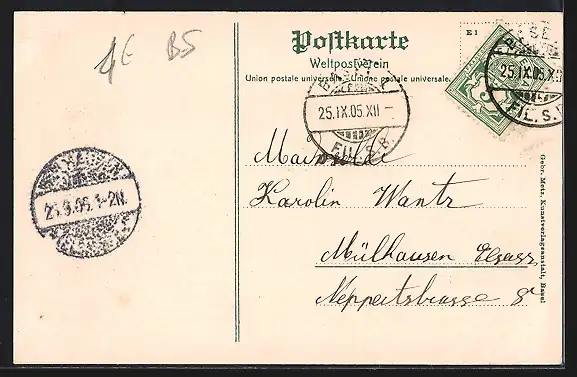 4E B5
Postkarte
Weltpostverein
Union postale universelle. Unione postale universale.
E 1
BASEL
25.IX.05.XII
FIL. S.B.
BASEL
25.IX.05.XII
FIL. S.B.
5
25.9.05. 1-2N.
Karolin Wantz
Mülhausen Elsass
Neppertstrasse 8
Gebr. Metz, Kunstverlagsanstalt, Basel